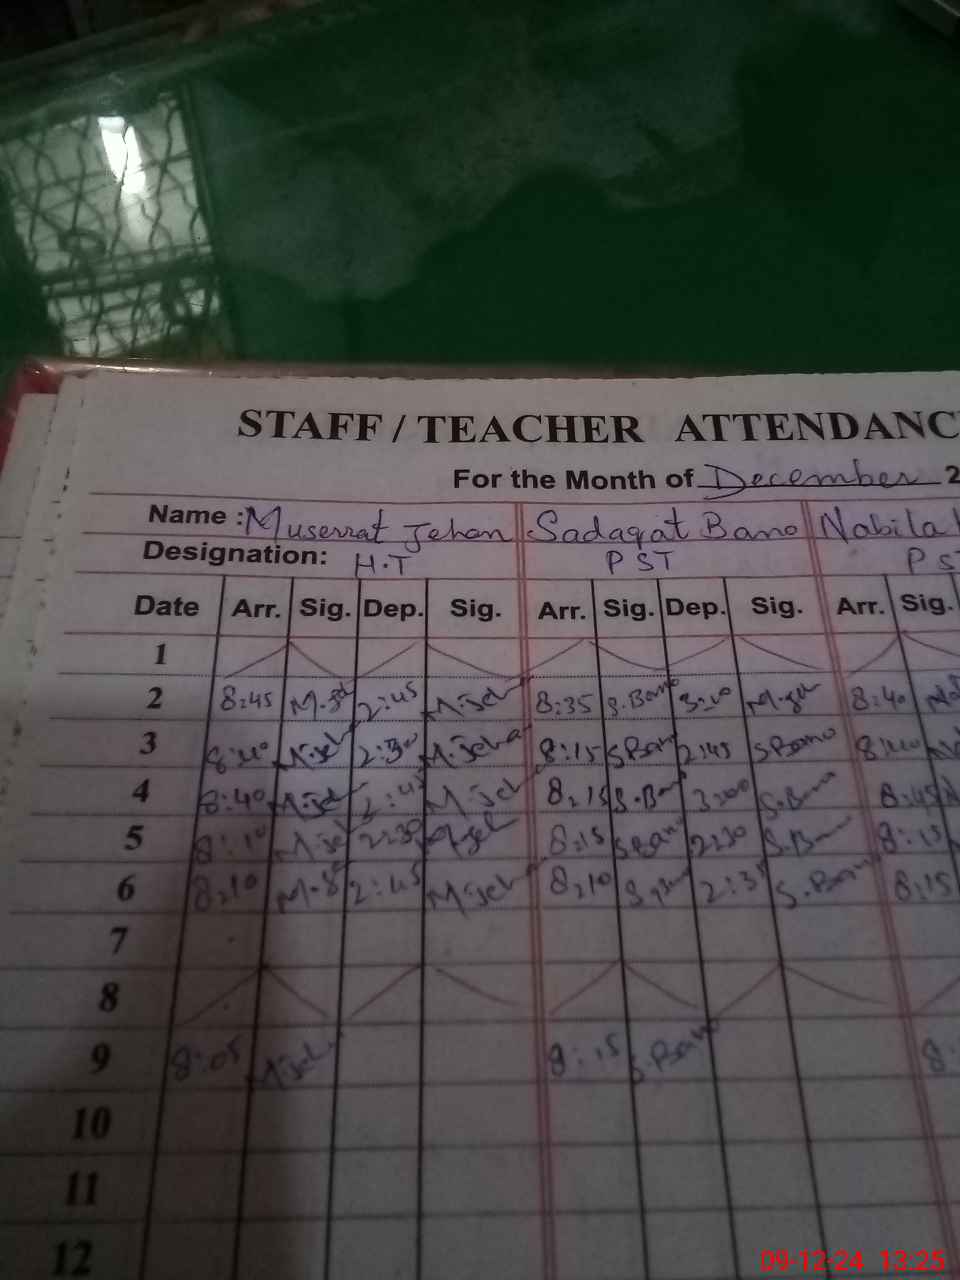 STAFF / TEACHER ATTENDANC
For the Month of December 2
Name : Muserrat Jehan Sadaqat Bano Nabila
Designation: H.T PST PS
Date Arr. Sig. Dep. Sig. Arr. Sig. Dep. Sig. Arr. Sig.
1
2 8:45 2:45 M.jeh 8:35 S.Bano 3:00 8:40
3 8:40 M.jeh 2:30 M.jeha 8:15 S.Ban 2:45 S.Bano 8:40
4 8:40 M.jeh 2:45 M.jeh 8:15 S.Ban 3:00 S.Bano 8:45
5 8:10 M.jeh 2:30 M.jeh 8:15 S.Bano 2:30 S.Bano 8:15
6 8:10 2:45 M.jeh 8:10 2:35 S.Bano 8:15
7
8
9 8:05 M.jeh 8:15 S.Bano 8:
10
11
12
09-12-24 13:25